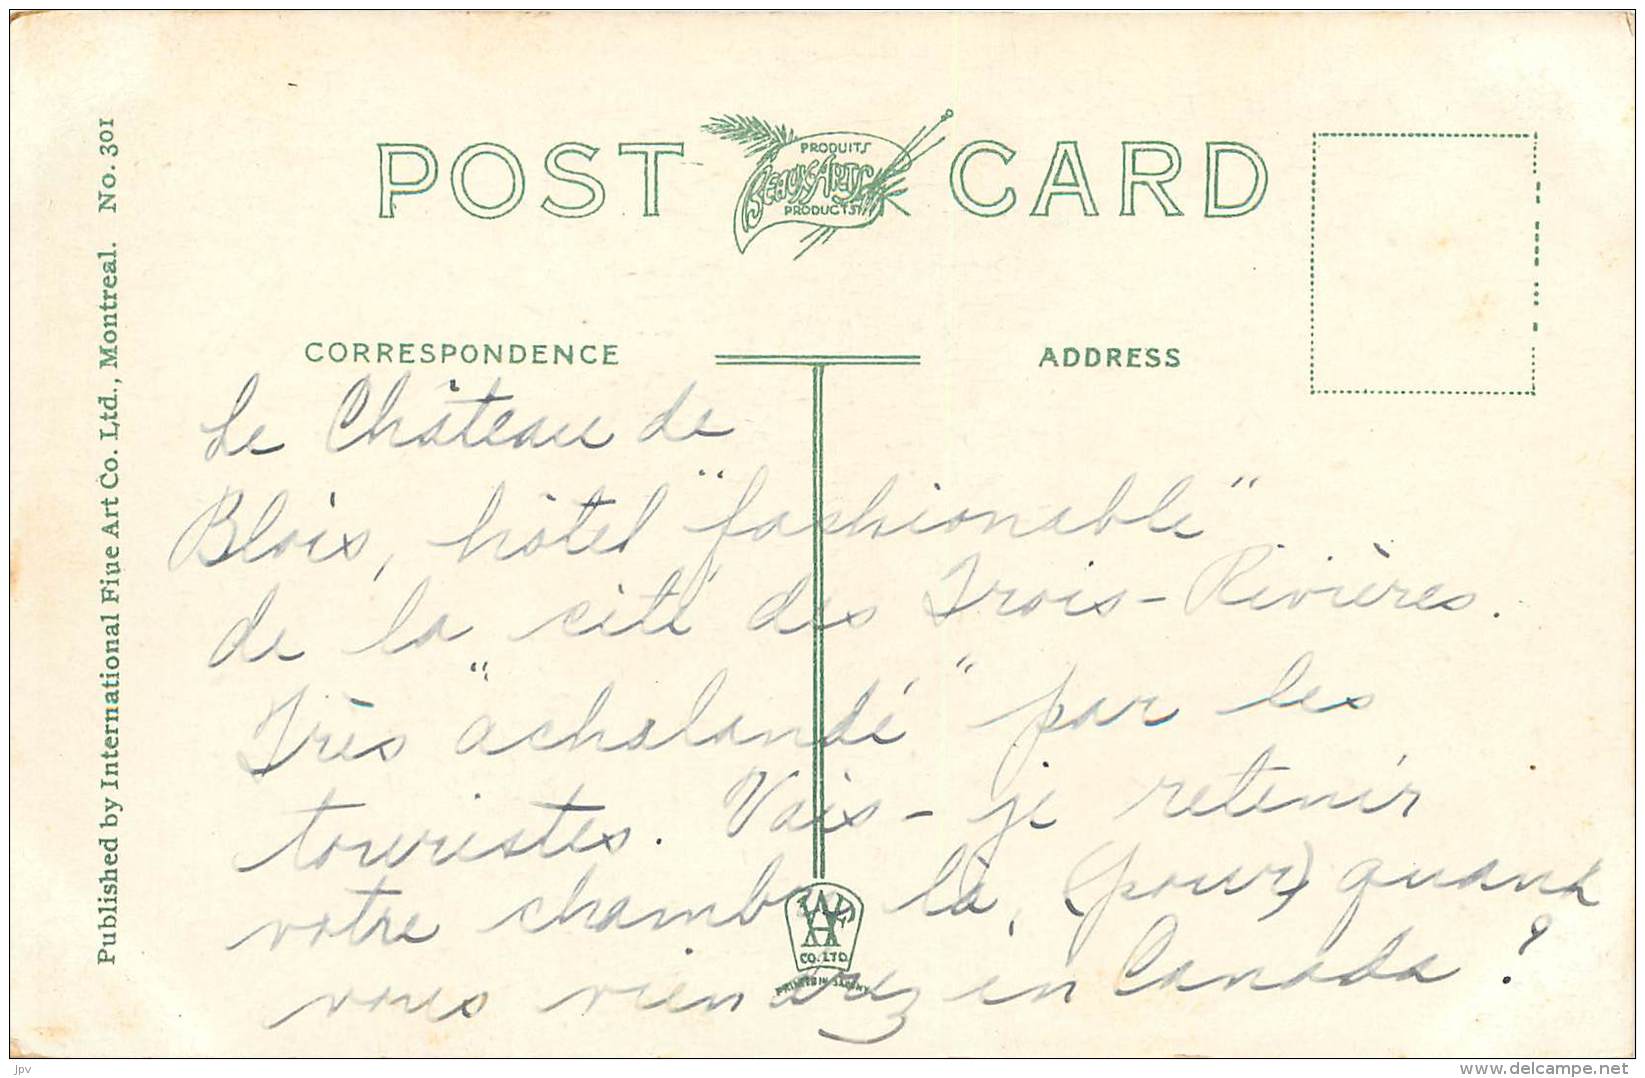 POST CARD
PRODUITS
BEAUX-ARTS
PRODUCTS
Published by International Fine Art Co. Ltd., Montreal. No. 301
CORRESPONDENCE
ADDRESS
Le Château de
Blois, hôtel "fashionable"
de la cité des Trois-Rivières.
Très "achalandé" par les
touristes. Vais-je retenir
votre chambre là, (pour) quand
vous viendrez en Canada ?
CO. LTD.
jpv
delcampe.net